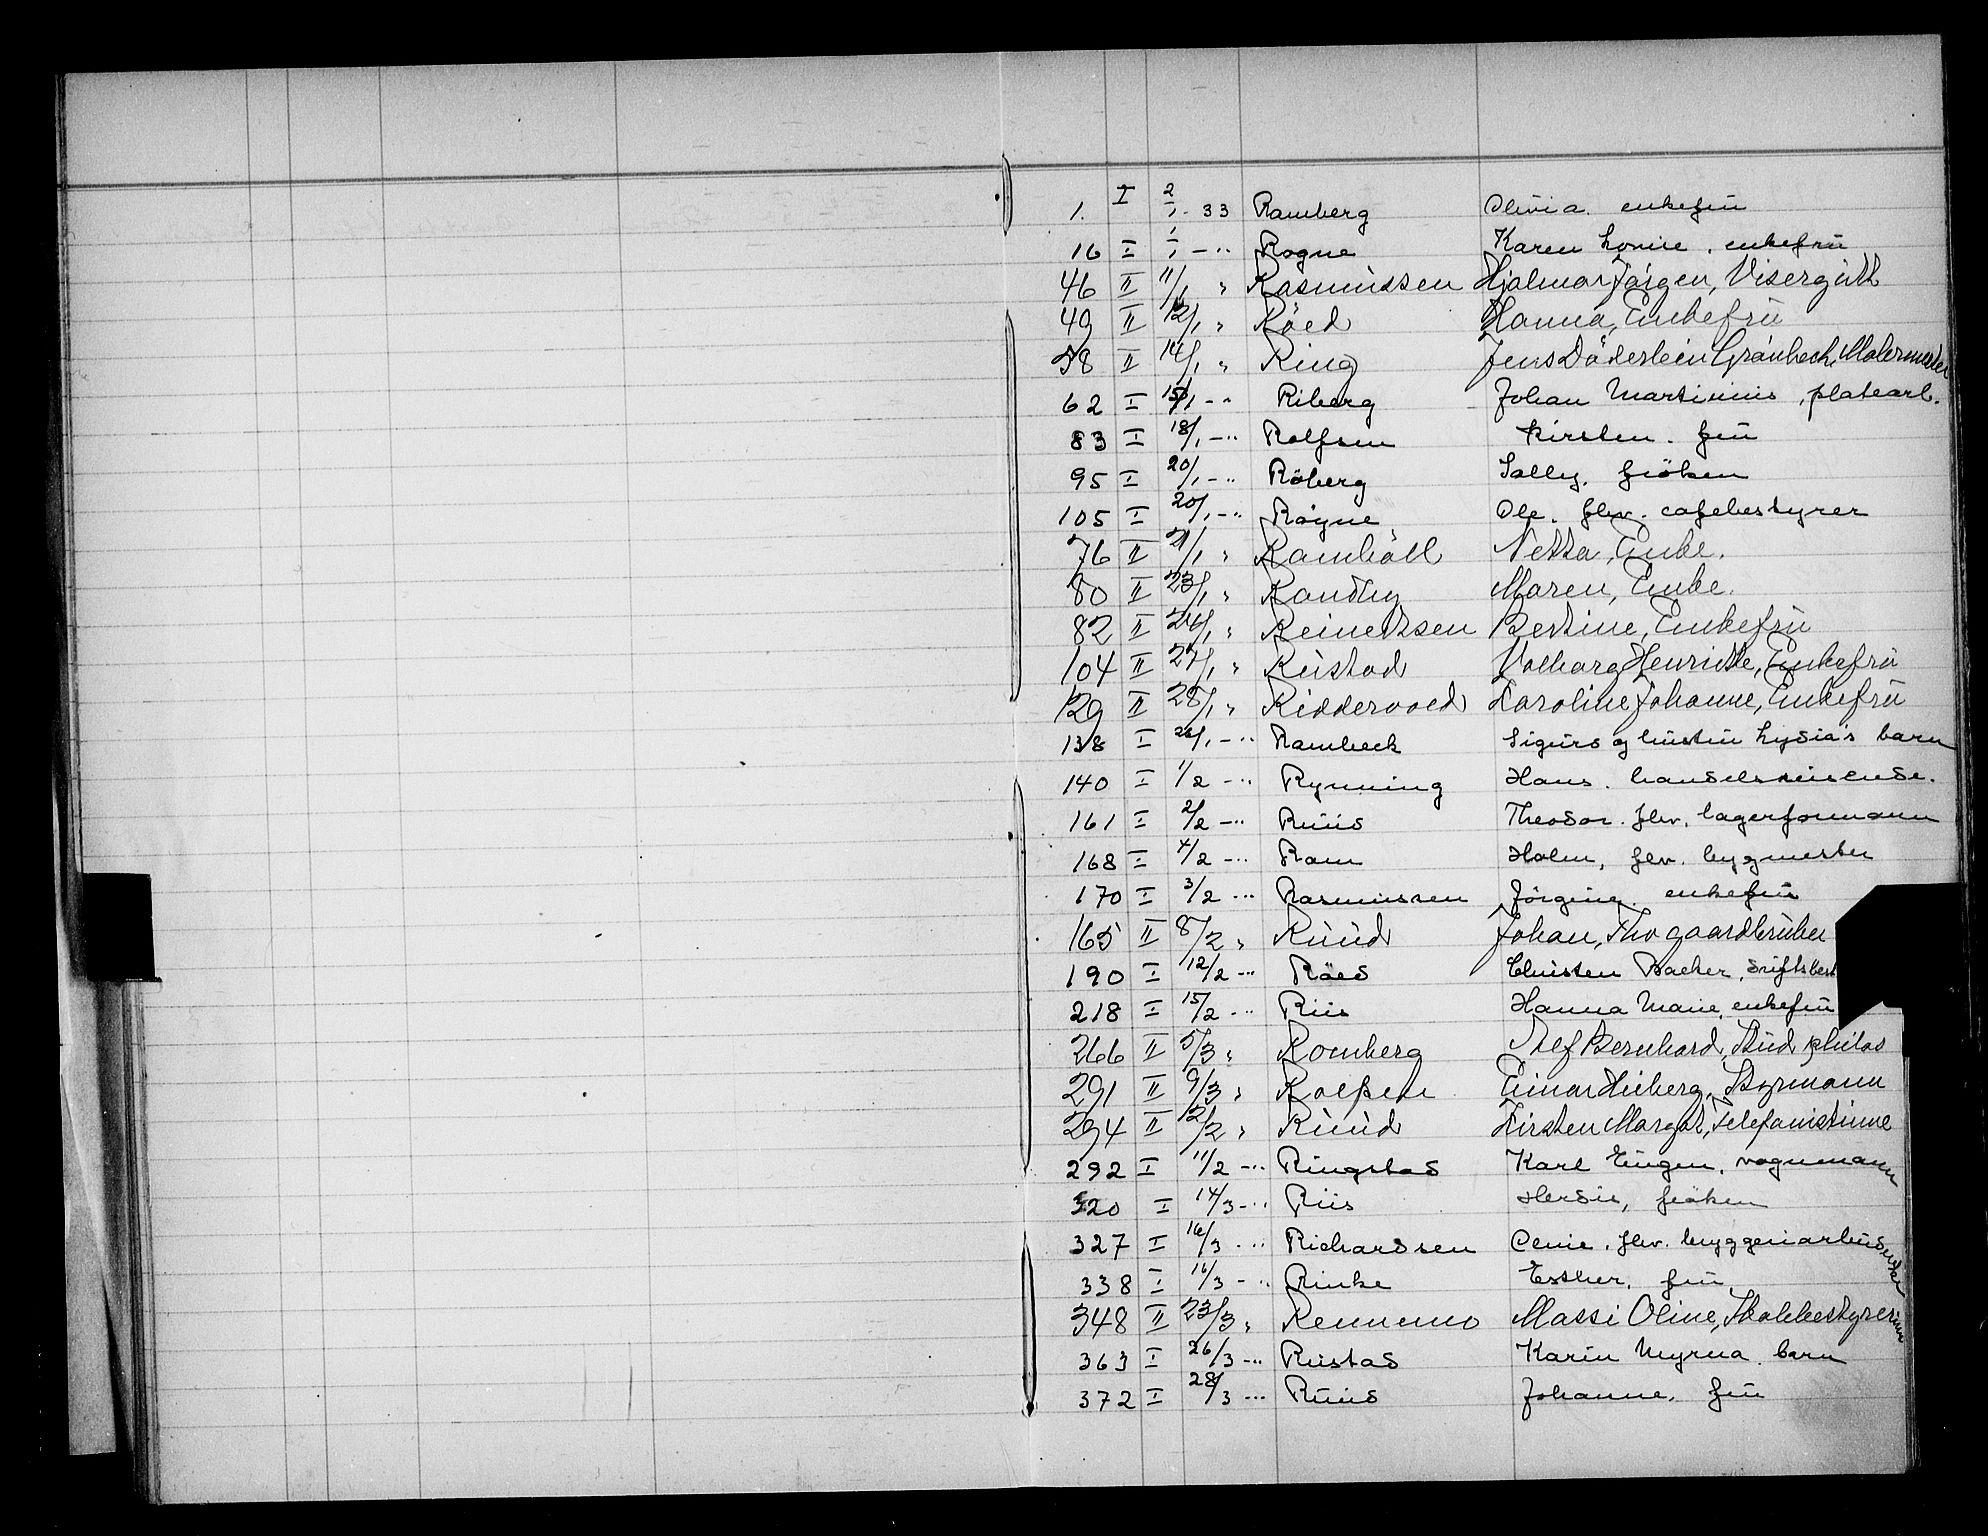 1. I 2/1 - 33 Ramberg Olivia. enkefru
16 I 1/1 - " Rogne Karen Lovise. enkefru
46 II 11/1 " Rasmussen Hjalmar Jörgen, Visergutt
49 II 12/1 " Röed Hanna, Enkefru
58 II 14/1 " Ring Jens Döderlein Grönbech, Malermester
62 I 15/1 - " Riberg Johan Martinius, platearb.
83 I 18/1 - " Rolfsen Kirsten. fru
95 I 20/1 - " Röberg Sally, fröken
105 I 20/1 - " Røgne Ole. fhv. cafebestyrer
76 II 21/1 " Ramhöll Netta, Enke.
80 II 23/1 " Randby Maren, Enke.
82 II 24/1 " Reinertsen Bertine, Enkefru
104 II 27/1 " Rustad Valborg Henriette, Enkefru
129 II 28/1 " Riddervold Karoline Johanne, Enkefru
138 I 26/1 - " Rambeck Sigurd og hustru Lydia's barn
140 I 1/2 - " Rynning Hans. handelsreisende.
161 I 2/2 - " Ruud Theodor. fhv. lagerformann
168 I 4/2 - " Ram Holm, fhv. bygmester
170 I 3/2 - " Rasmussen Jörgine. enkefru
165 II 8/2 " Ruud Johan, Fhv gaardbruker
190 I 12/2 - " Röed Christen Backer, driftsbest
218 I 15/2 - " Riis Hanna Marie, enkefru
266 II 5/3 " Romberg Alef Bernhard, Stud philos
291 II 9/3 " Rolfsen Einar Heiberg, Styrmann
294 II 12/2 " Ruud Kirsten Margot, Telefonistinne
292 I 11/2 - " Ringstad Karl Eugen, vognmann
320 I 14/3 - " Riis Herdis, fröken
327 I 16/3 - " Richardsen Oenie, fhv. bryggeriarbeiderske
338 I 16/3 - " Rinke Esther, fru
348 II 23/3 " Rennemo Massi Oline, Skolebestyrerinne
363 I 26/3 - " Rustad Karin Myrna. barn
372 I 28/3 - " Ruud Johanne. fru